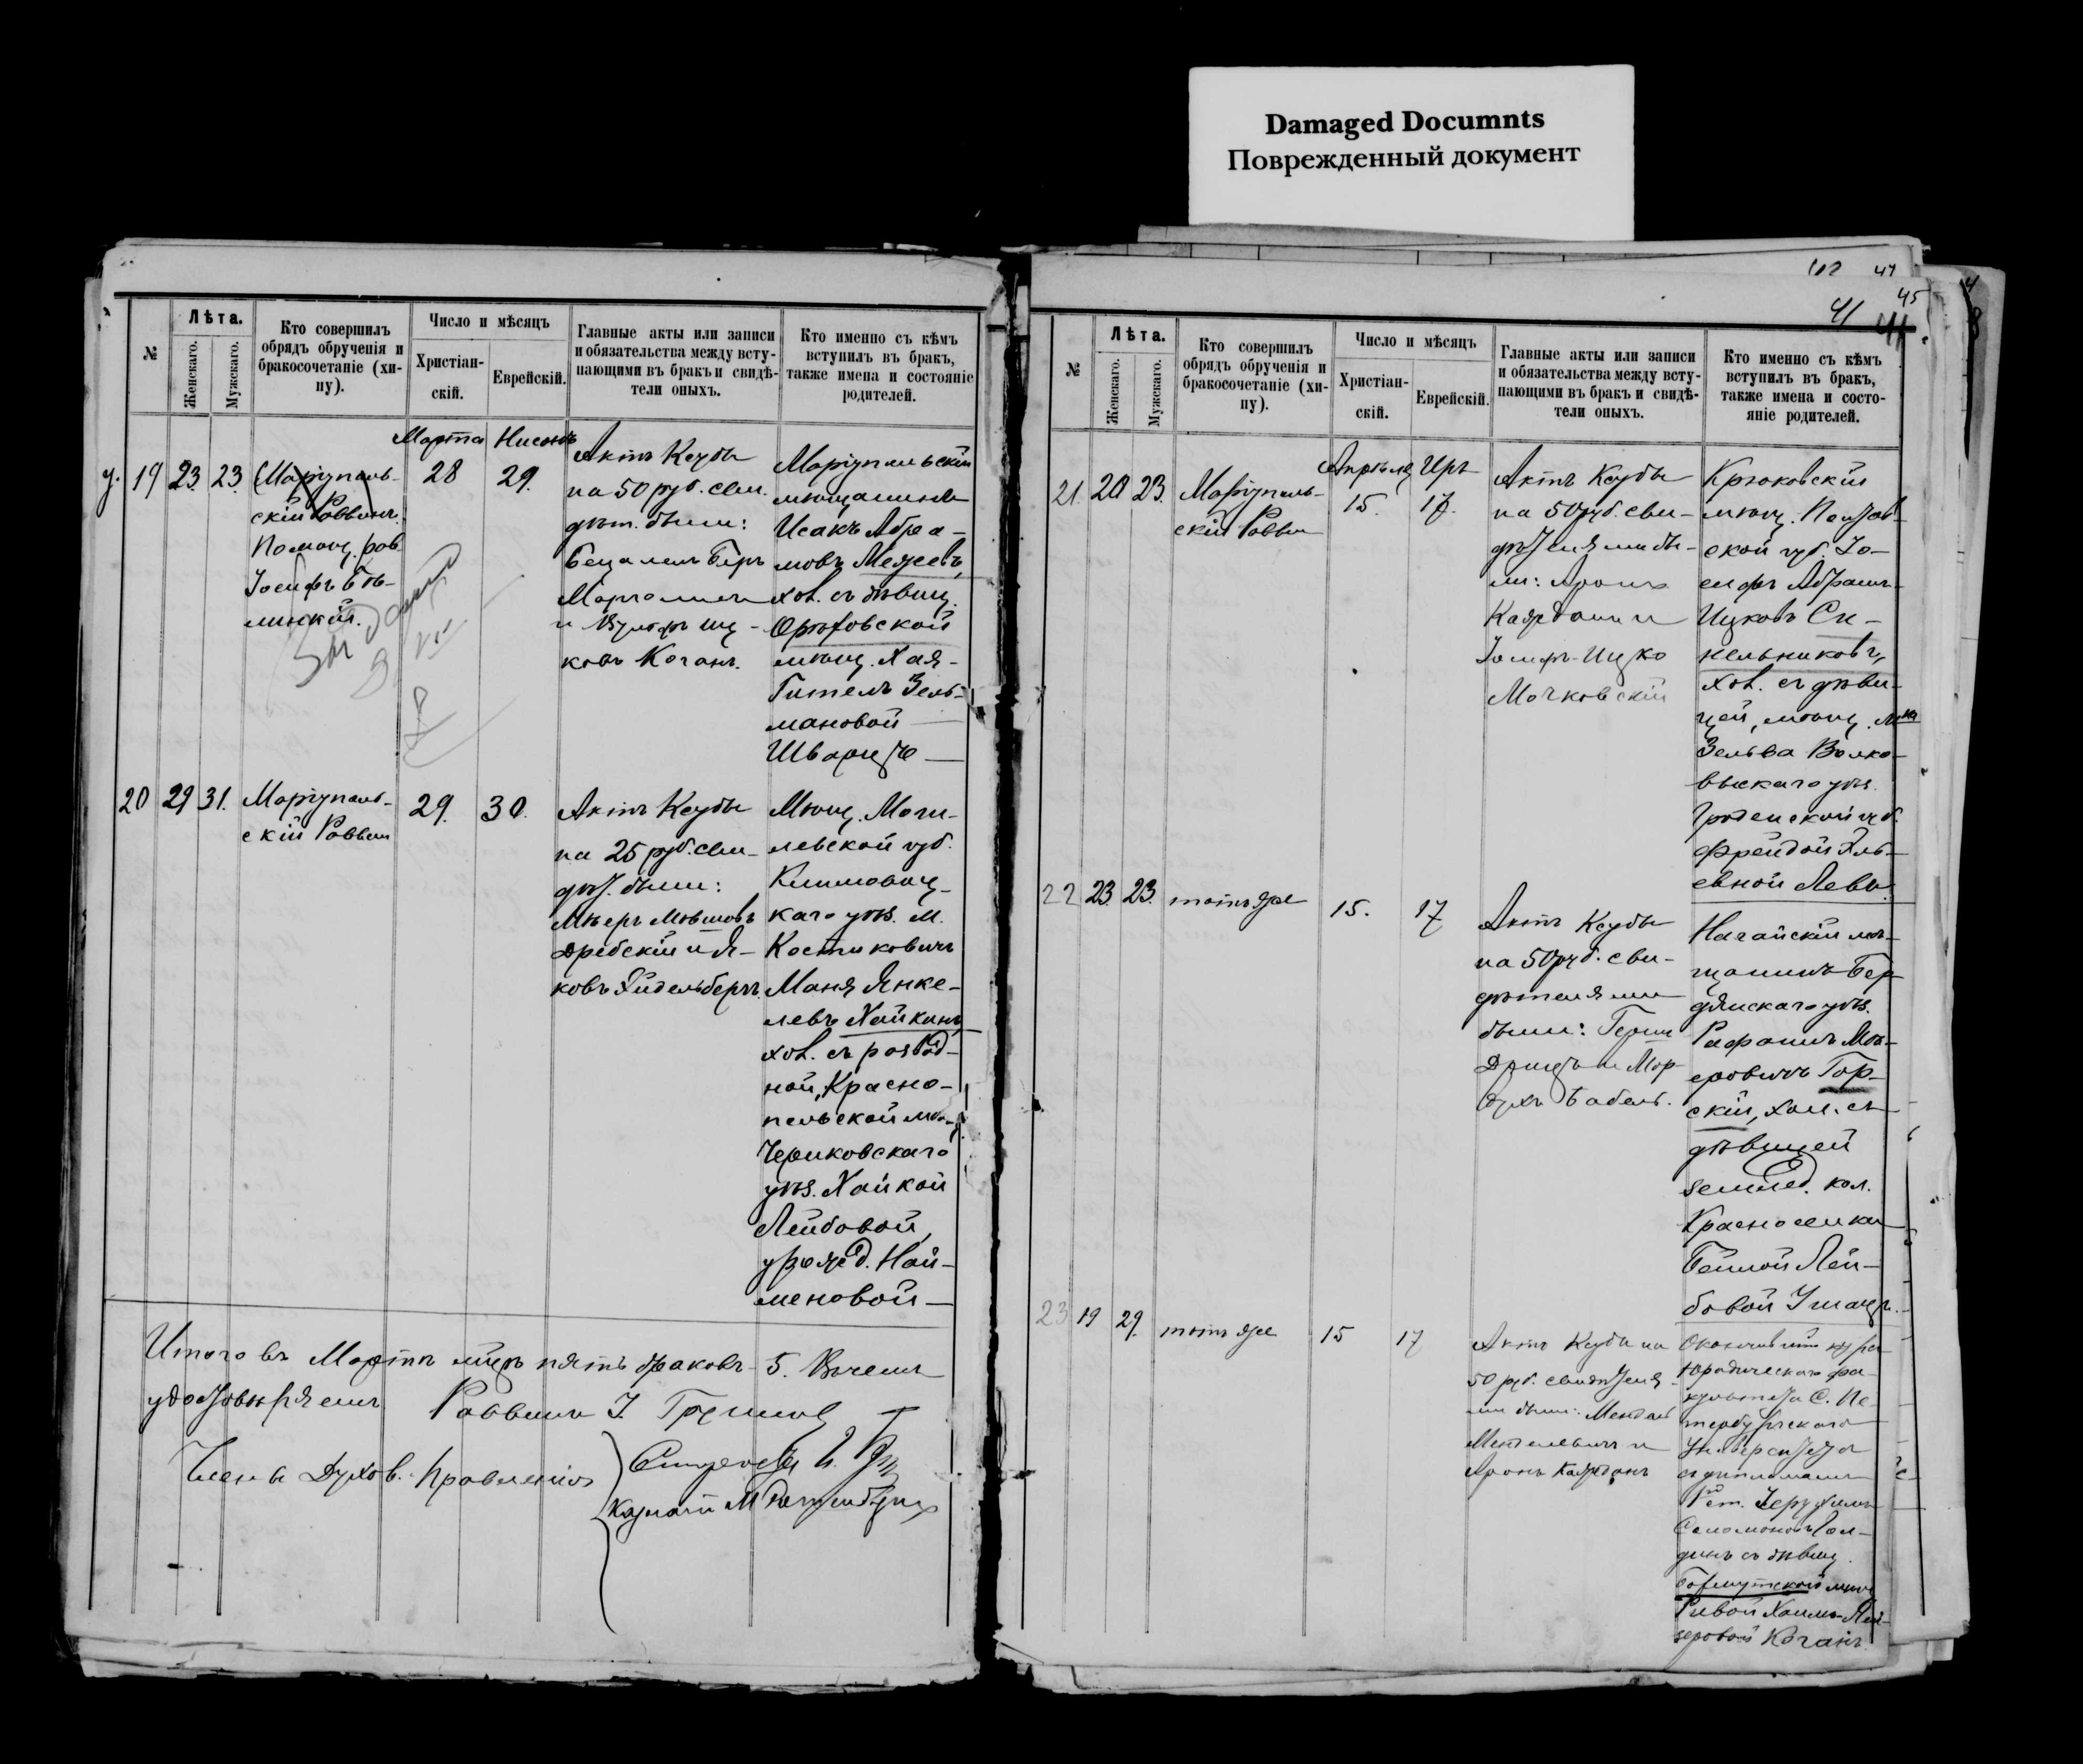 Damaged Documnts
Поврежденный документ
№
Лѣта.
Женскаго.
Мужскаго.
Кто совершилъ
обрядъ обрученія и
бракосочетаніе (хи-
пу).
Число и мѣсяцъ
Христіан-
скій.
Еврейскій.
Главные акты или записи
и обязательства между всту-
пающими въ бракъ и свидѣ-
тели оныхъ.
Кто именно съ кѣмъ
вступилъ въ бракъ,
также имена и состояніе
родителей.
у. 19 23 23.
Маріуполь-
скій Раввинъ.
Помощ. рав.
Іосифъ Бѣ-
линскій.
Марта
28
Нисонъ
29.
Актъ Ксубы
на 50 руб. сви-
дѣт. были:
Бецалель Беръ
ковъ Коганъ.
Маріупольскій
мѣщанинъ
Исакъ Абра-
мовъ Межевъ,
хол. съ дѣвиц.
Орѣховской
мѣщ. Хая-
Гителъ Зель-
мановой
Шварцъ
20 29 31.
Маріуполь-
скій Раввин
29.
30.
Актъ Ксубы
на 25 руб. сви-
дѣт. были:
Мѣеръ Мовшовъ
Дребскій и Я-
ковъ Эйдельбергъ.
Мѣщ. Моги-
левской губ.
Климовиц-
каго уѣз. м.
Костюковичъ
Маня Янке-
левъ Хайкинъ
хол. съ развод-
ной, Красно-
польской мѣщ.
Чериковскаго
уѣз. Хайкой
Лейбовой,
урожд. Най-
меновой
Итого въ Мартѣ мцѣ пять браковъ 5. Въ чемъ
удостовѣряемъ Раввинъ І.
Члены Духов. Правленія
Казначей М
102 47
45
41
№
Лѣта.
Женскаго.
Мужскаго.
Кто совершилъ
обрядъ обрученія и
бракосочетаніе (хи-
пу).
Число и мѣсяцъ
Христіан-
скій.
Еврейскій.
Главные акты или записи
и обязательства между всту-
пающими въ бракъ и свидѣ-
тели оныхъ.
Кто именно съ кѣмъ
вступилъ въ бракъ,
также имена и состо-
яніе родителей.
21. 20 23.
Маріуполь-
скій Раввин
Апрѣля
15.
Иръ
17.
Актъ Ксубы
на 50 руб. сви-
дѣтелями бы-
ли: Аронъ
Каждан и
Іосифъ-Ицко
Мочковскій
Крюковскій
мѣщ. Полтав-
ской губ. Іо-
сифъ Абрамъ-
Ицковъ Си-
нельниковъ,
хол. съ дѣви-
цей, мѣщ. м-ка
Зельва Волко-
выскаго уѣз.
Гроденской губ.
Фрейдой Эль-
евной Левъ.
22 23. 23.
тотъ же
15.
17
Актъ Ксубы
на 50 руб. сви-
дѣтелями
были: Герш
Ногайскій мѣ-
щанинъ Бер-
дянскаго уѣз.
Рафаилъ Мо-
еровичъ Гор-
скій, хол. съ
дѣвицей
землед. кол.
Красноселка
Бейлой Лей-
бовой
23 19 29.
тотъ же
15
17
Актъ Ксубы на
50 руб. свидѣтеля-
ми были: Мендель
Аронъ Кажданъ
Окончившій курсъ
Юридическаго фа-
культета С. Пе-
тербургскаго
Университета
съ дипломомъ
Соломоновъ
динъ съ дѣвиц.
Бахмутской мѣщ
Ривой Хаимъ-Лей-
зеровой Коганъ.